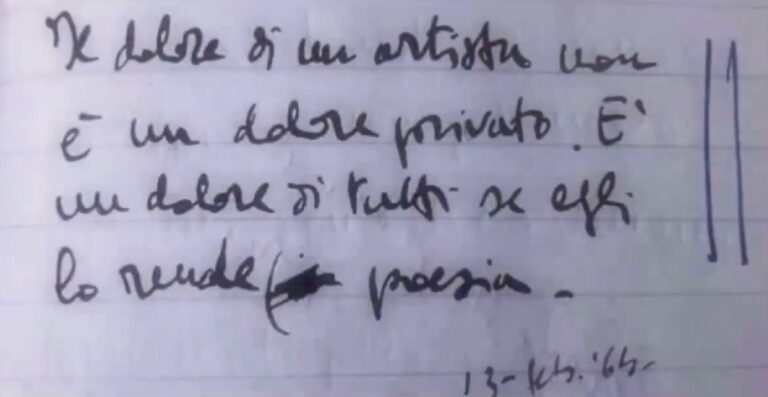 Il dolore di un artista non
è un dolore privato. E'
un dolore di tutti se egli
lo rende poesia -
13-